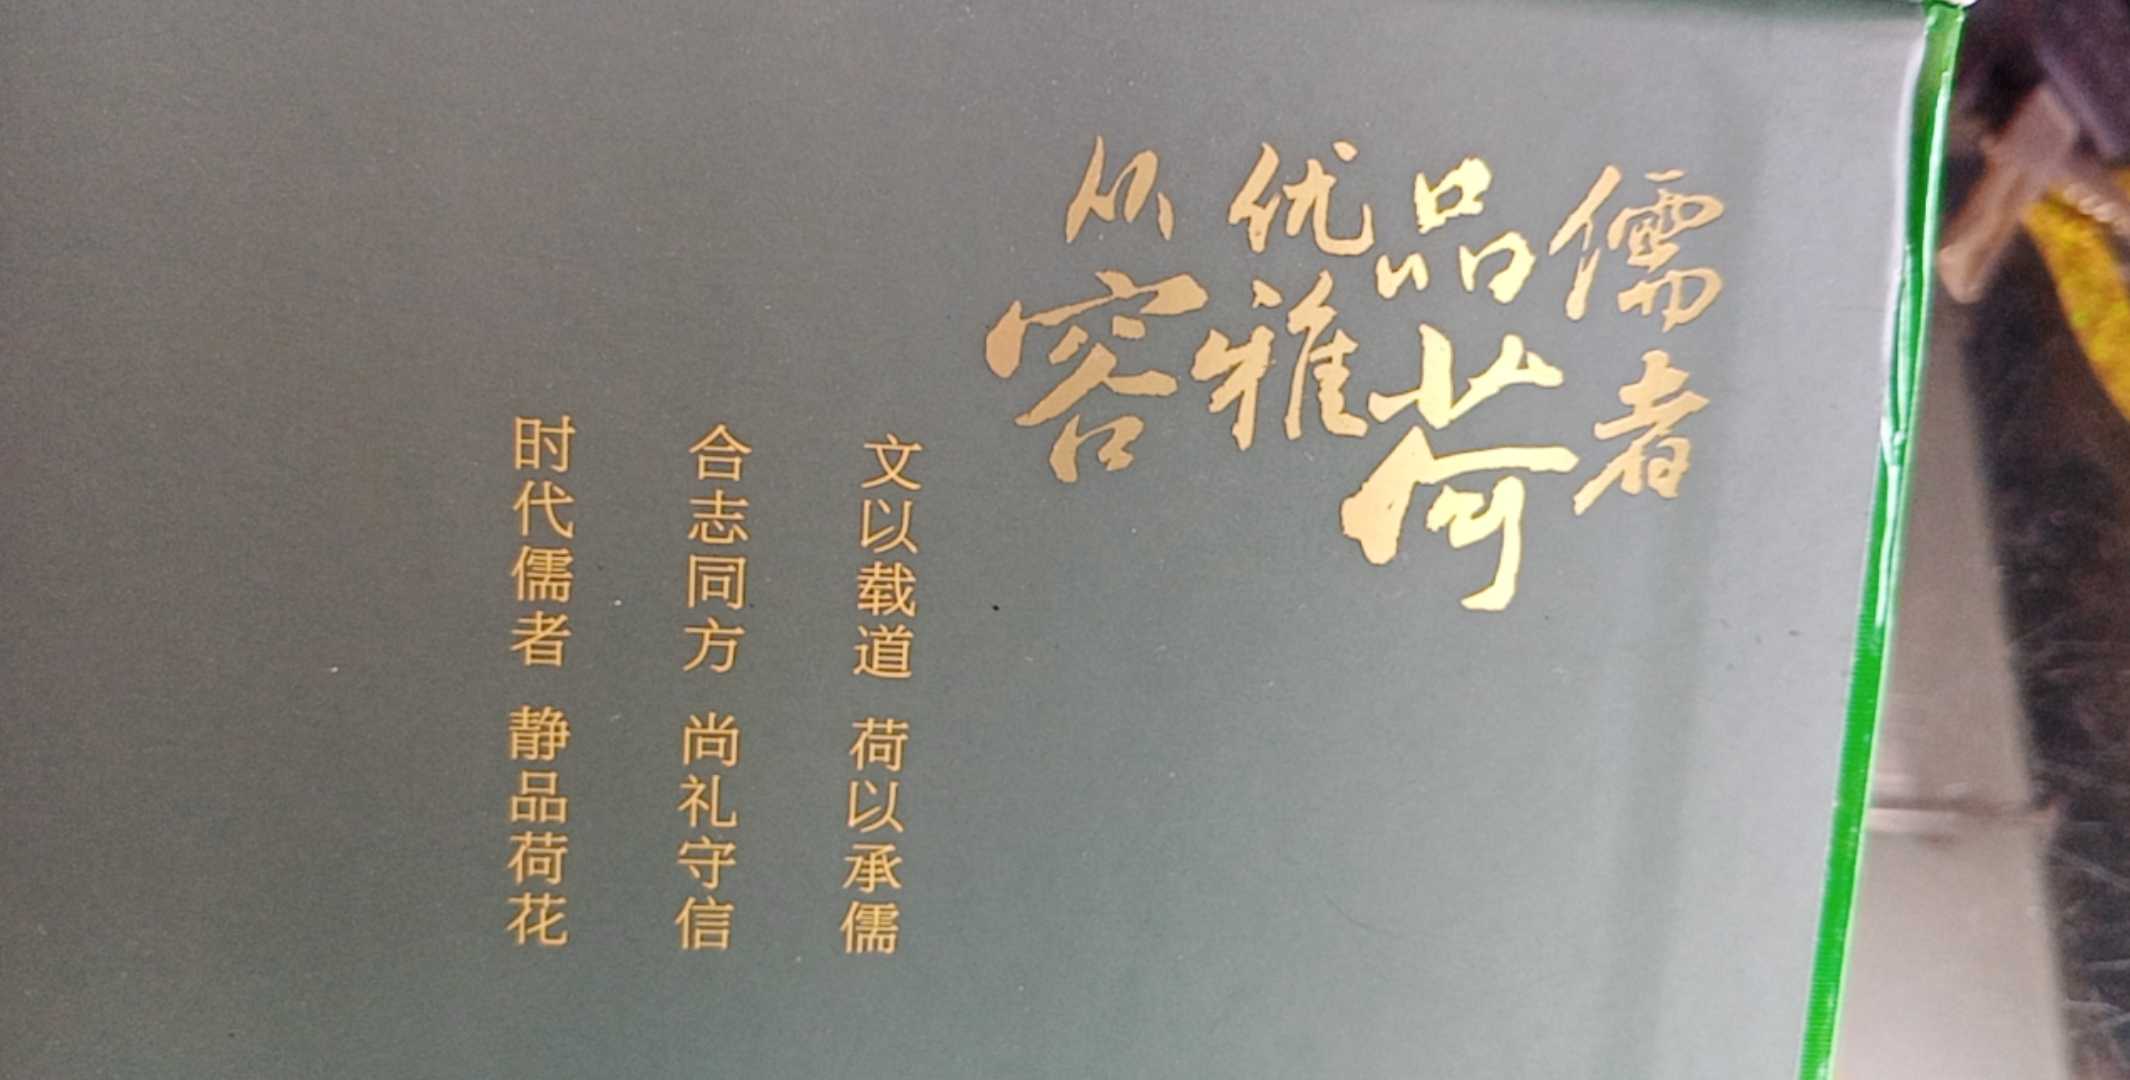 儒者
品荷
优雅
从容
文以载道 荷以承儒
合志同方 尚礼守信
时代儒者 静品荷花